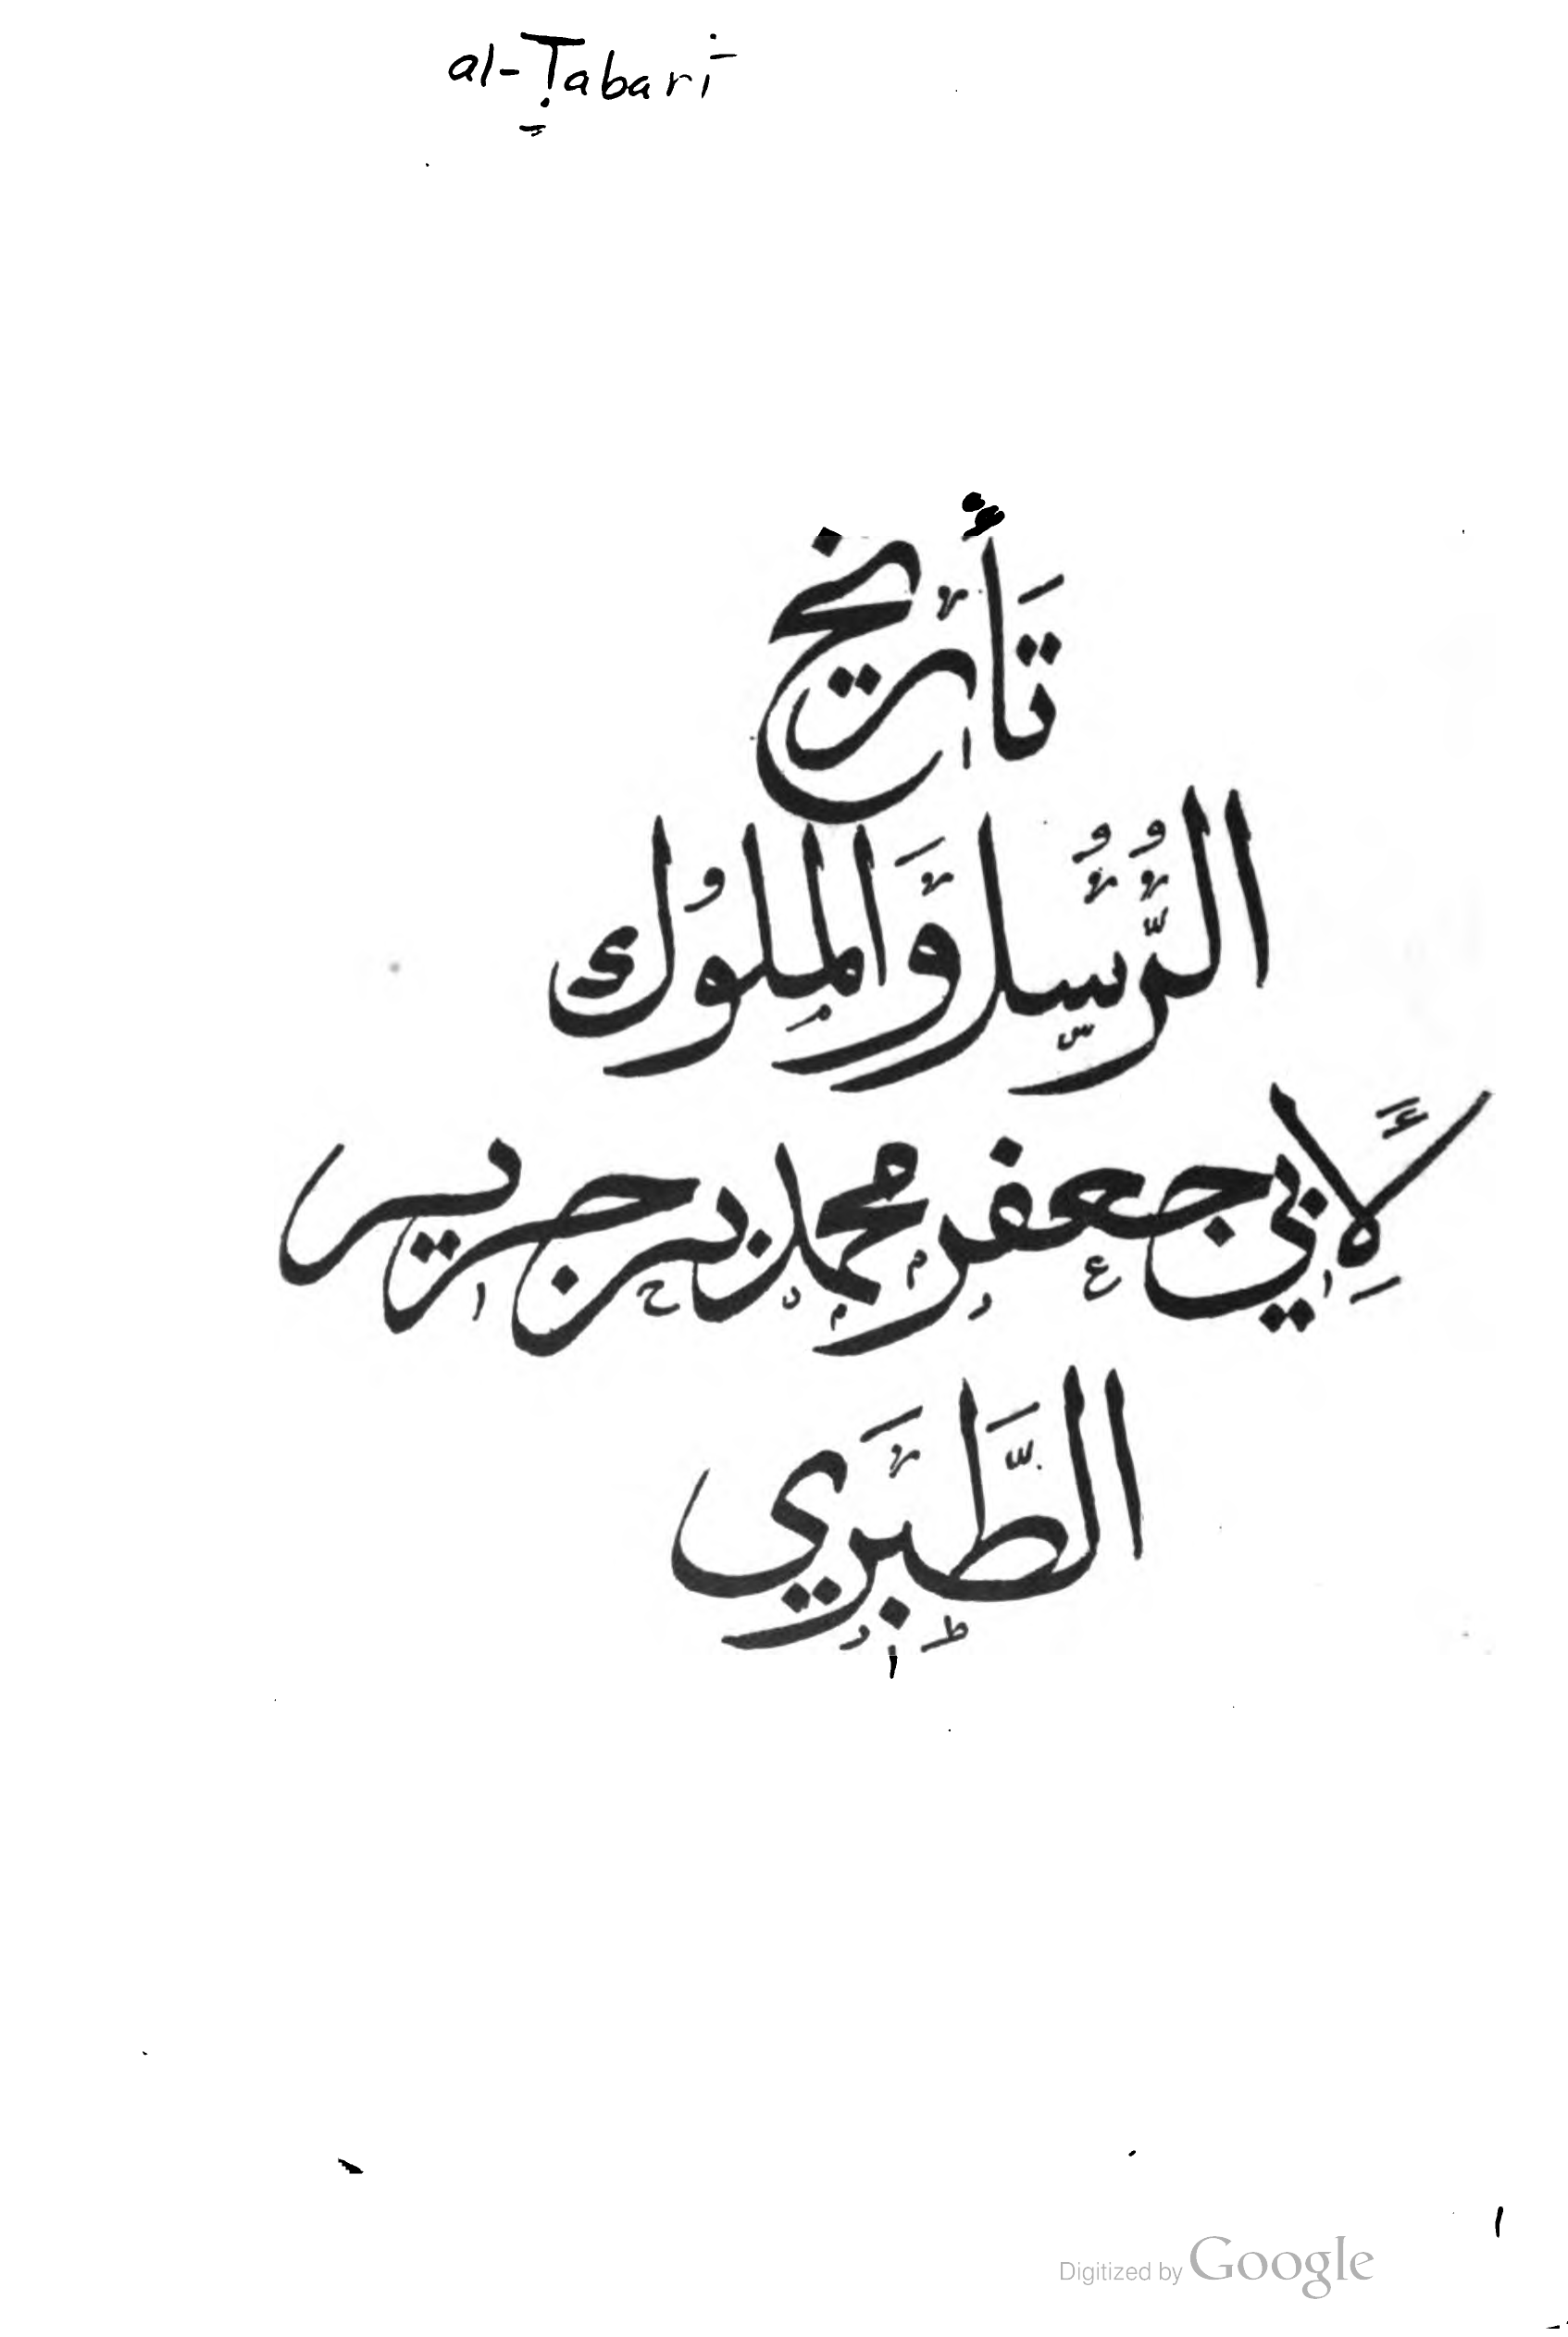 al-Ṭabarī
تَأريخ
الرُّسُل وَالملوُك
لأَبِي جعفر محمد بن جرير
الطَّبَري
Digitized by Google